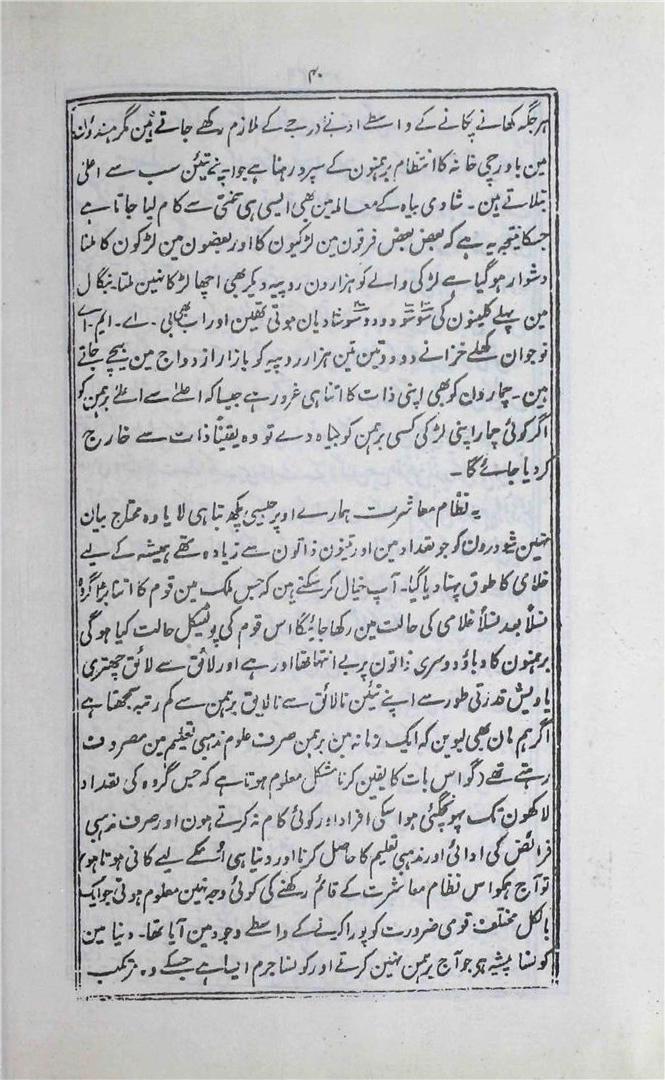 ۳۰
ہر جگہ کھانے پکانے کے واسطے ادنےٰ درجے کے ملازم رکھے جاتے ہین مگر ہندوُون
مین باورچی خانہ کا انتظام برہمنون کے سپرد رہتا ہے جو اپنے تیئن سب سے اعلیٰ
بتلاتے ہین۔ شادی بیاہ کے معاملہ مین بھی ایسی ہی سختی سے کام لیا جاتا ہے
جسکا نتیجہ یہ ہے کہ بعض بعض فرقون مین لڑکیون کا اور بعضون مین لڑکون کا ملنا
دشوار ہو گیا ہے لڑکی والے کو ہزارون روپیہ دیکر بھی اچھا لڑکا نہین ملتا بنگال
مین پہلے کلینون کی سو سو دو دو سو شادیان ہوتی تھین اور اب بھی بی۔ اے۔ ایم۔ اے
نوجوان کھلے خزانے دو دو تین تین ہزار روپیہ کو بازار ازدواج مین بیچے جاتے
ہین۔ چمارون کو بھی اپنی ذات کا اتنا ہی غرور ہے جیسا کہ اعلےٰ سے اعلےٰ برہمن کو
اگر کوئی چمار اپنی لڑکی کسی برہمن کو بیاہ دے تو وہ یقیناً ذات سے خارج
کر دیا جائے گا۔
یہ نظام معاشرت ہمارے اوپر جیسی کچھ تباہی لایا وہ محتاج بیان
نہین شودرون کو جو تعداد مین اور تینون ذاتون سے زیادہ تھے ہمیشہ کے لیے
غلامی کا طوق پہنا دیا گیا۔ آپ خیال کر سکتے ہین کہ جس ملک مین قوم کا اتنا بڑا گروہ
نسلاً بعد نسلاً غلامی کی حالت مین رکھا جائیگا اس قوم کی پولٹیکل حالت کیا ہوگی
برہمنون کا دباؤ دوسری ذاتون پر بے انتہا تھا اور ہے اور لائق سے لائق چھتری
یا ویش قدرتی طور سے اپنے تیئن نالائق سے نالایق برہمن سے کم رتبہ سمجھتا ہے
اگر ہم مان بھی لیوین کہ ایک زمانہ مین برہمن صرف علوم مذہبی تعلیم مین مصروف
رہتے تھے (گو اس بات کا یقین کرنا مشکل معلوم ہوتا ہے کہ جس گروہ کی تعداد
لاکھون تک پہونچگئی ہو اسکی افراد اور کوئی کام نہ کرتے ہون اور صرف مذہبی
فرائض کی ادائی اور مذہبی تعلیم کا حاصل کرنا اور دنیا ہی انکے لیے کافی ہوتا ہو)
تو آج ہمکو اس نظام معاشرت کے قائم رکھنے کی کوئی وجہ نہین معلوم ہوتی جو ایک
بالکل مختلف قومی ضرورت کو پورا کرنے کے واسطے وجود مین آیا تھا۔ دنیا مین
کونسا پیشہ ہے جو آج برہمن نہین کرتے اور کونسا جرم ایسا ہے جسکے وہ مرتکب